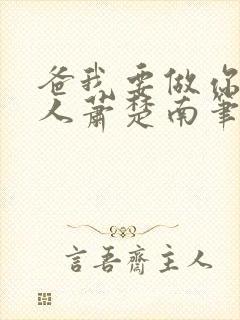 爸我要做你
人萧楚南笔
言吾齋主人